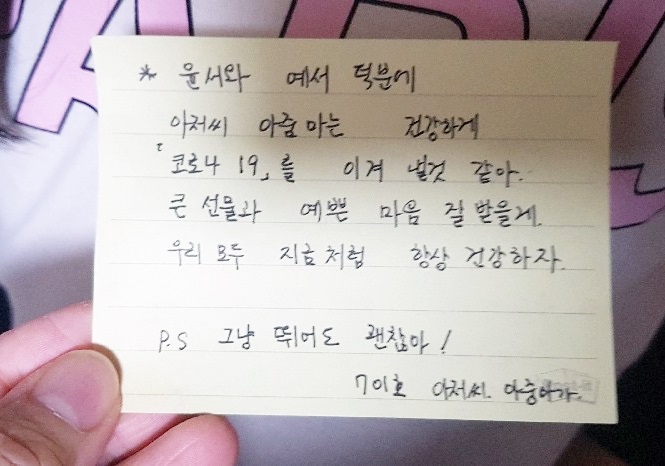 * 윤서와 예서 덕분에
아저씨 아줌마는 건강하게
「코로나 19」를 이겨 낼것 같아.
큰 선물과 예쁜 마음 잘 받을게.
우리 모두 지금처럼 항상 건강하자.
P.S 그냥 뛰어도 괜찮아!
701호 아저씨. 아줌마가.